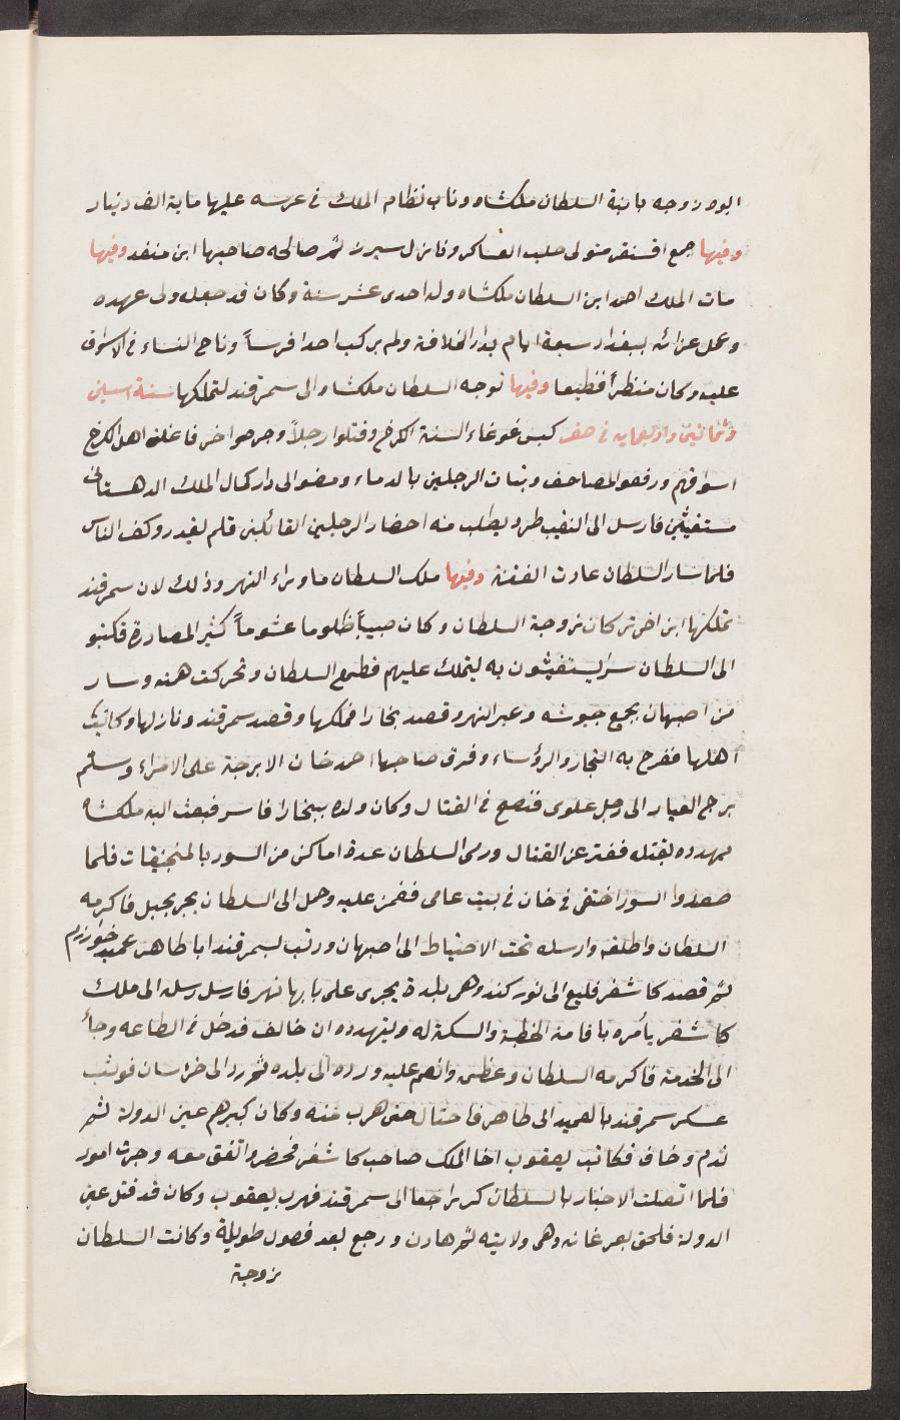 ابوه زوجه بابنة السلطان ملكشاه وناب نظام الملك في عرسه عليها ماية الف دينار
وفيها جمع اقسنقر متولى حلب العساكر ونازل سيرز ثم صالحه صاحبها ابن منقذ وفيها
مات الملك احمد ابن السلطان ملكشاه وله احدى عشر سنة وكان قد جعله ولى عهده
وعمل عزائه ببغداد سبعة ايام بدار الخلافة ولم يركب احدا فرساً وناح النساء في الاسواق
عليه وكان منظراً فظيعا وفيها توجه السلطان ملكشاه الى سمرقند لتملكها سنة اسنين
وثمانين واربعمايه في صفر كبس غوغاء السنة الكرخ وقتلوا رجلاً وجرحوا اخر فاغلق اهل الكرخ
اسواقهم ورفعو المصاحف وبثات الرجلين بالدماء ومضو الى دار كمال الملك الدهستانى
مستغيثين فارسل الى النقيب طرد يطلب منه احضار الرجلين القائلين فلم يقدر وكف الناس
فلما سار السلطان عادت الفتنة وفيها ملك السلطان ماوراء النهر وذلك لان سمرقند
تملكها ابن اخى تركان زوجة السلطان وكان صبياً ظلوما غشوماً كثير المصادرة فكتبو
الى السلطان سرا يستغيثون به ليتملك عليهم فطمع السلطان وتحركت همته وسار
من اصبهان بجمع جيوشه وعبر النهر وقصد بخارا فملكها وقصد سمرقند ونازلها وكاتب
اهلها ففرح به التجار والرؤساء وفرق صاحبها احمد خان الابرجة على الامراء وسلم
برج العيار الى رجل علوى فنصح في القتال وكان ولده ببخارا فاسر فبعث اليه ملكشاه
يهدده بقتله ففتر عن القتال ورمى السلطان عدة اماكن من السور بالمنجنيقات فلما
صعدوا السور اختفى في خان في بيت عامى فغمز عليه وحمل الى السلطان يجر بحبل فاكرمه
السلطان واطلقه وارسله تحت الاحتياط الى اصبهان ورتب لسمرقند ابا طاهر عميد خوارزم
ثم قصد كاشغر فبلغ الى نوركند وهى بلدة يجرى على بابها نهر فارسل رسله الى ملك
كاشغر يأمره باقامة الخطبة والسكة له ويتهدده ان خالف فدخل في الطاعه وجأ
الى الخدمة فاكرمه السلطان وعظمه وانعم عليه ورده الى بلده ثم رد الى خراسان فوثب
عسكر سمرقند بالعميد ابى طاهر فاحتال حتى هرب منه وكان كبيرهم عين الدولة ثم
ندم وخاف فكاتب يعقوب اخا الملك صاحب كاشغر فحضر واتفق معه وجرت امور
فلما اتصلت الاخبار بالسلطان كر راجعا الى سمرقند فهرب يعقوب وكان قد قتل عين
الدولة فلحق بفرغانه وهى ولايته ثم هادن ورجع بعد فصول طويلة وكانت السلطان
زوجة